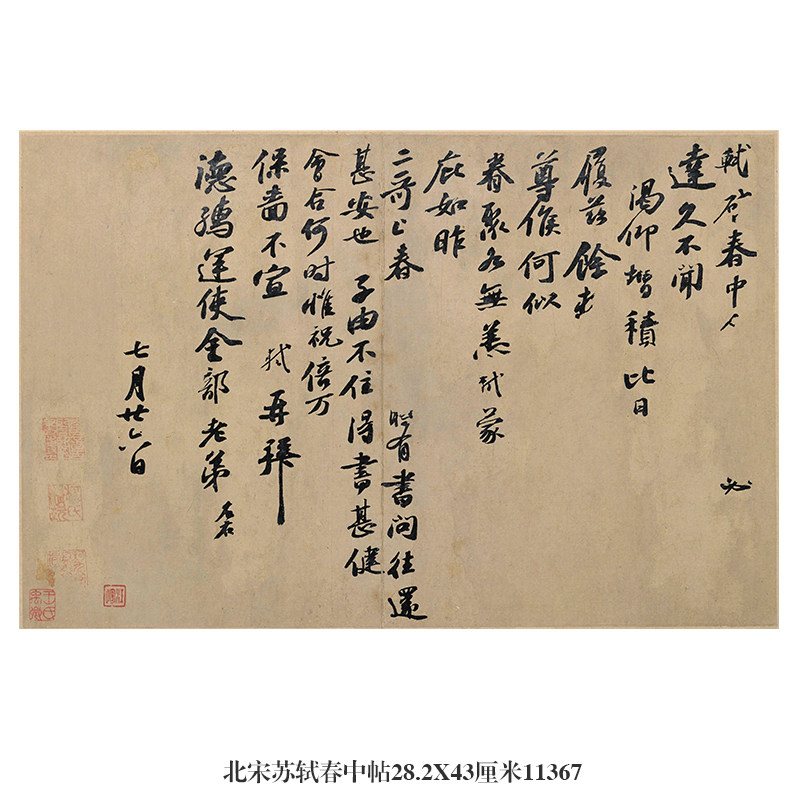 軾啓春中人必
達久不聞
渴仰增積比日
履茲餘
尊候何似
眷聚各無恙軾蒙
庇如昨
二哥上春時有書問往還
甚安也子由不住得書甚健
會合何時惟祝倍万
保嗇不宣軾再拜
德孺運使金部老弟左右
七月廿六日
北宋苏轼春中帖28.2X43厘米11367